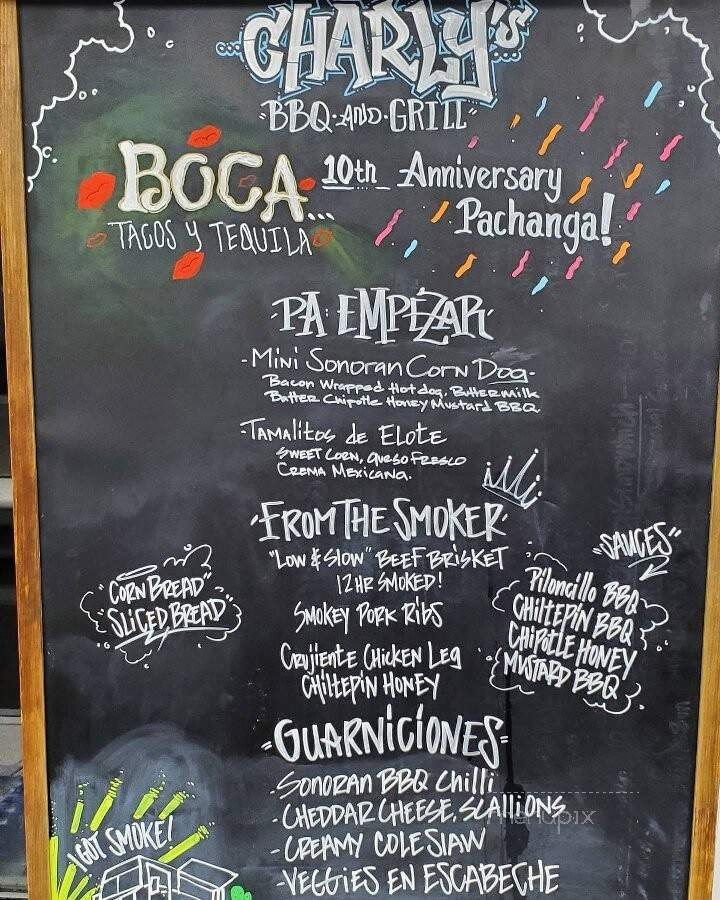 CHARLY'S
"BBQ-AND-GRILL"
BOCA... 10th Anniversary
TACOS Y TEQUILA Pachanga!
PA EMPEZAR
-Mini Sonoran Corn Dog-
Bacon Wrapped Hotdog, Buttermilk
Batter Chipotle Honey Mustard BBQ
-TAMALITOS de ELOTE
SWEET CORN, QUESO FRESCO
CREMA MEXICANA.
FROM THE SMOKER
"LOW & SLOW" BEEF BRISKET
12HR SMOKED!
SMOKEY PORK RIBS
CRUJIENTE CHICKEN LEG
CHILTEPIN HONEY
CORN BREAD"
"SLICED BREAD"
"SAUCES"
PILONCILLO BBQ
CHILTEPIN BBQ
CHIPOTLE HONEY
MUSTARD BBQ
"GUARNICIONES"
-SONORAN BBQ Chilli
-CHEDDAR CHEESE, SCALLIONS
-CREAMY COLESLAW
-VEGGIES EN ESCABECHE
I GOT SMOKE!
menupix